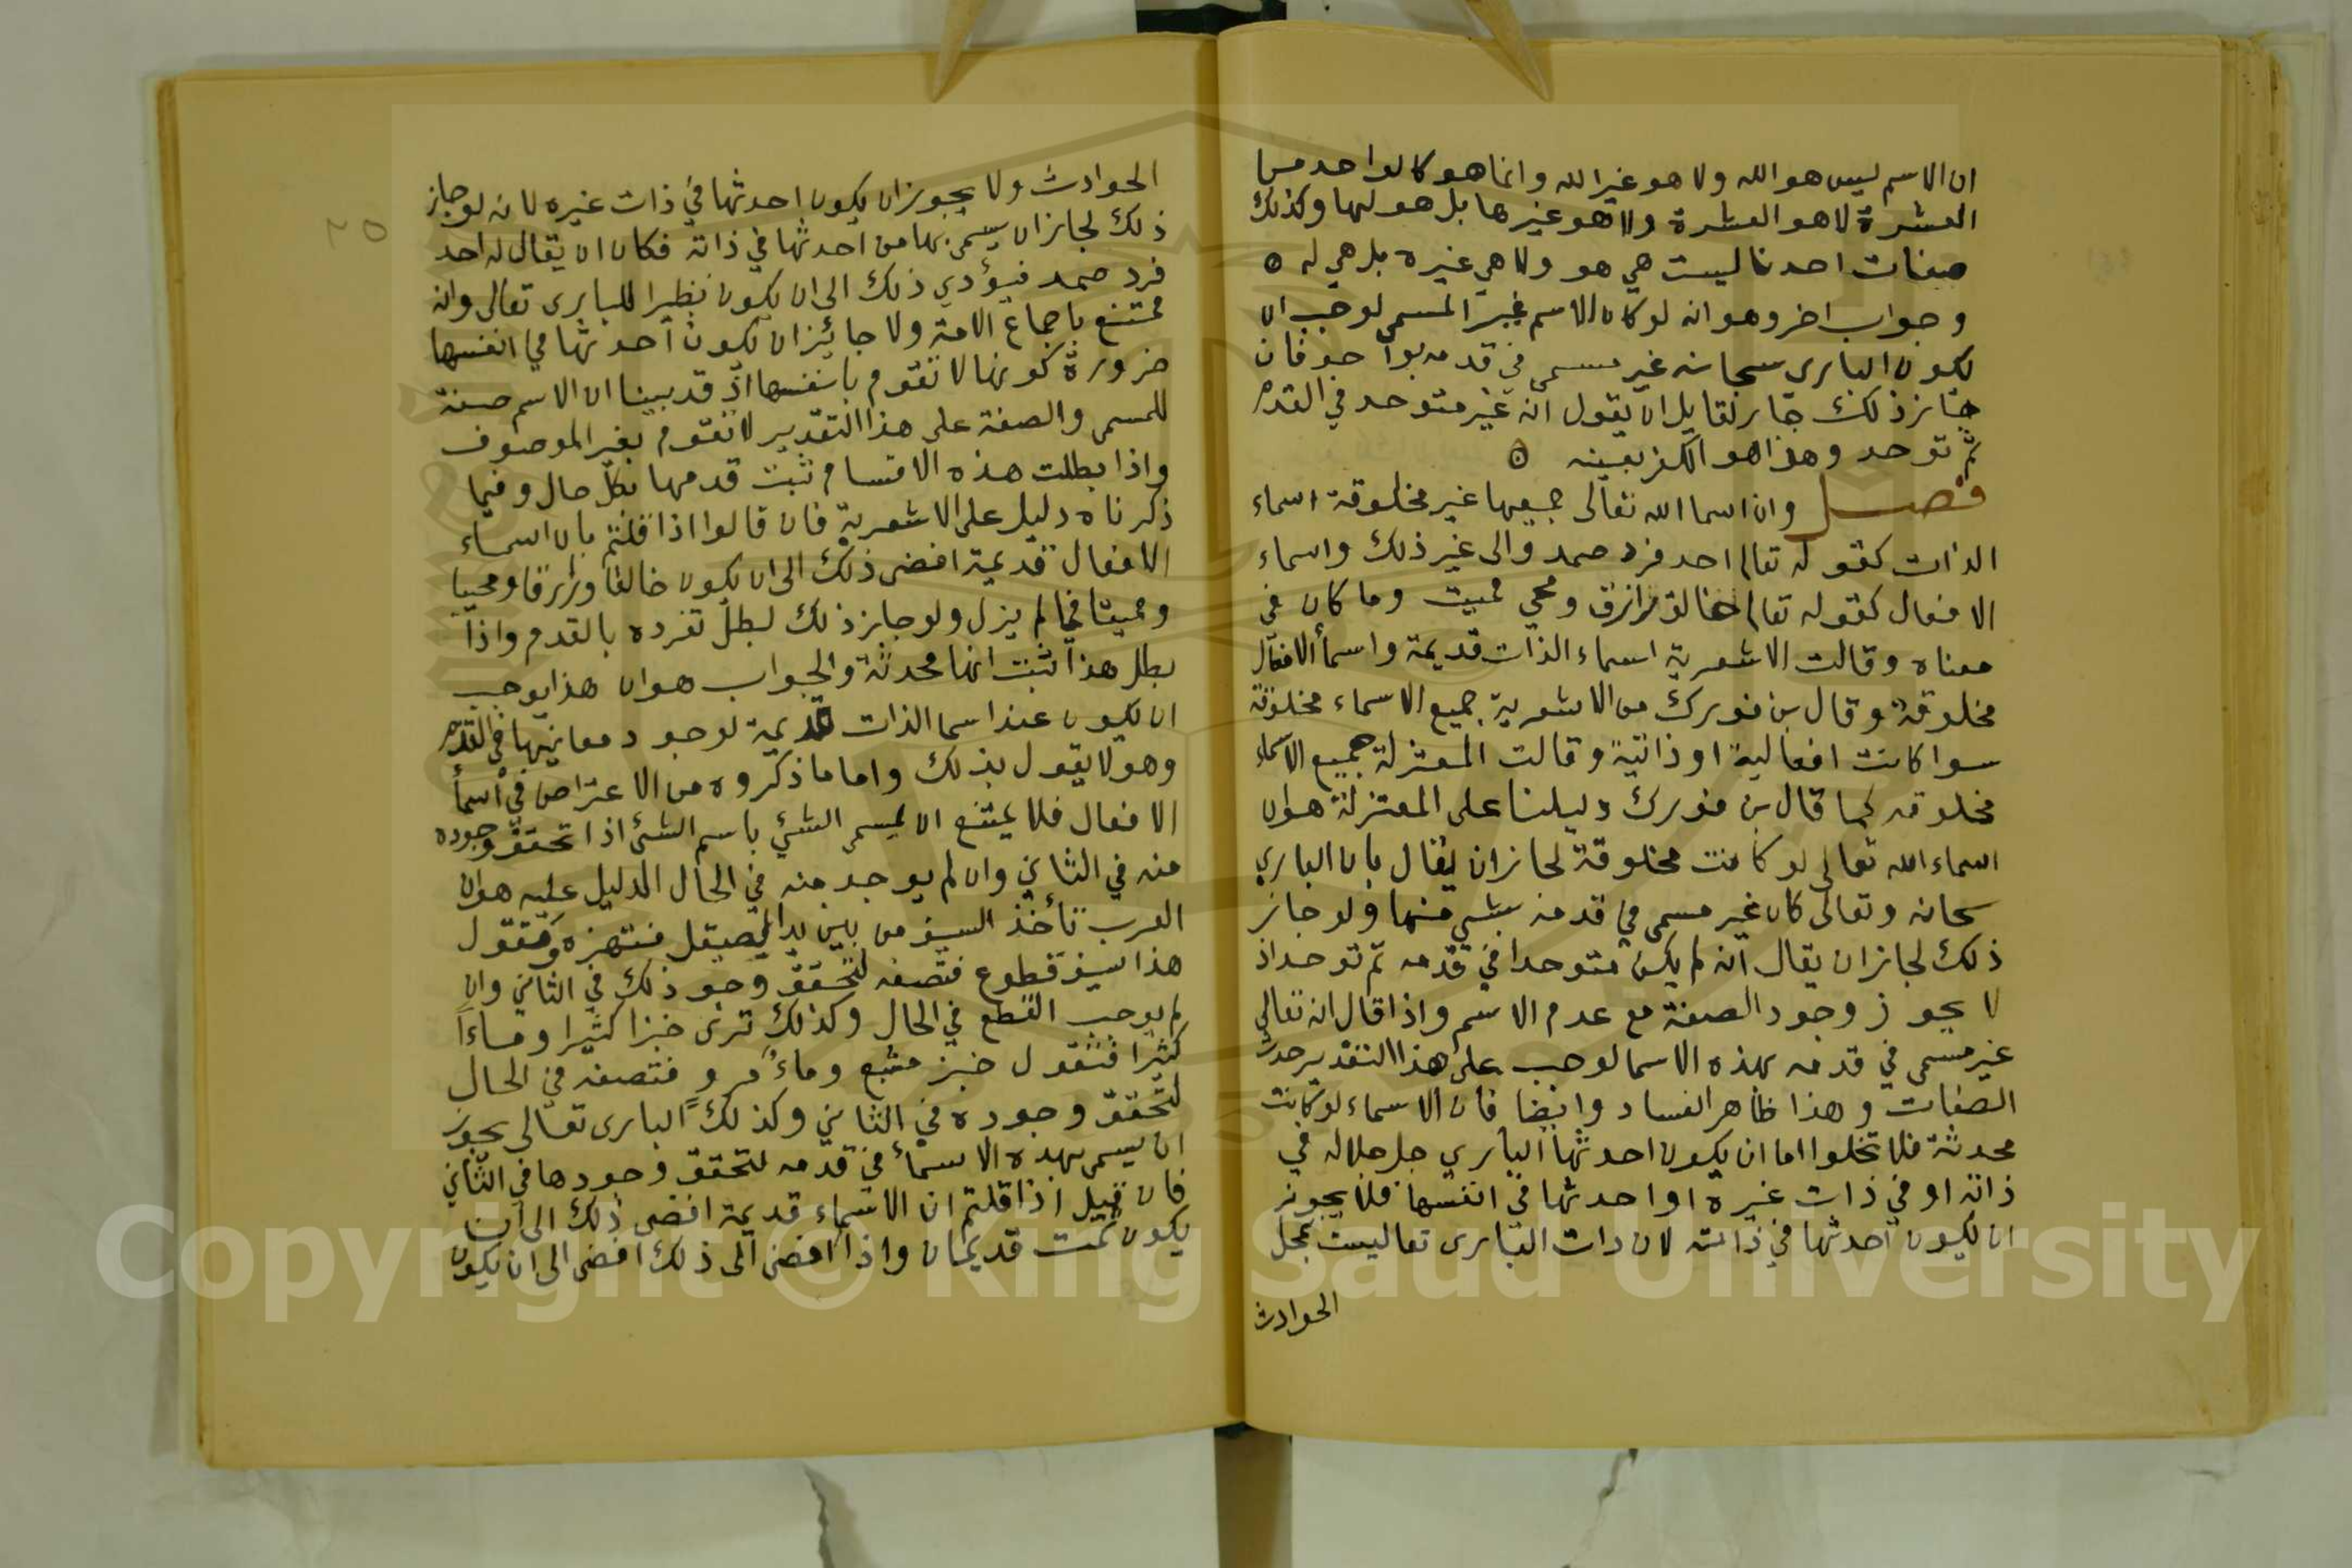 ان الاسم ليس هو الله ولا هو غير الله وانما هو كالواحد من
العشرة لا هو العشرة ولا هو غيرها بل هو لها وكذلك
صفات احدنا ليست هي هو ولا هي غيره بل هي له ه
وجواب اخر وهو انه لو كان الاسم غير المسمى لوجب ان
يكون الباري سبحانه غير مسمى في قدمه فان
جاز ذلك جاز لقايل ان يقول انه غير متوحد في القدم
ثم توحد وهذا هو الكفر بعينه ه
فصل وان اسما الله تعالى جميعها غير مخلوقة اسماء
الذات كقوله تعالى احد فرد صمد والى غير ذلك واسماء
الافعال كقوله تعالى خالق رازق ومحي مميت وما كان في
معناه وقالت الاشعرية اسماء الذات قديمة واسماء الافعال
مخلوقة وقال بن فورك من الاشعرية جميع الاسماء مخلوقة
سوا كانت افعالية او ذاتية وقالت المعتزلة جميع الاسماء
مخلوقه كما قال بن فورك دليلنا على المعتزلة هو ان
اسماء الله تعالى لو كانت مخلوقة لجاز ان يقال بان الباري
سبحانه وتعالى كان غير مسمى في قدمه بشي منها ولو جاز
ذلك لجاز ان يقال انه لم يكن متوحدا في قدمه ثم توحد اذ
لا يجوز وجود الصفة مع عدم الاسم واذا قال انه تعالى
غير مسمى في قدمه بهذه الاسما لوجب على هذا التقدير حدث
الصفات وهذا ظاهر الفساد وايضا فان الاسماء لو كانت
محدثة فلا تخلوا اما ان يكون احدثها الباري جل جلاله في
ذاته او في ذات غيره او احدثها في انفسها فلا يجوز
ان يكون احدثها في ذاته لان ذات الباري تعا ليست بمحل
الحوادث
٢٥
الحوادث ولا يجوز ان يكون احدثها في ذات غيره لانه لو جاز
ذلك لجاز ان يسمى بها من احدثها في ذاته فكان ان يقال له احد
فرد صمد فيؤدي ذلك الى ان يكون نظيرا للباري تعالى وانه
ممتنع باجماع الامة ولا جائز ان يكون احدثها في انفسها
ضرورة كونها لا تقوم بانفسها اذ قد بينا ان الاسم صفة
للمسمى والصفة على هذا التقدير لا تقوم بغير الموصوف
واذا بطلت هذه الاقسام ثبت قدمها بكل حال وفيما
ذكرناه دليل على الاشعرية فان قالوا اذا قلتم بان اسماء
الافعال قديمة افضى ذلك الى ان يكون خالقا ورازقا ومحييا
ومميتا فيما لم يزل ولو جاز ذلك لبطل تفرده بالقدم واذا
بطل هذا ثبت انها محدثة والجواب هو ان هذا يوجب
ان يكون عندا سما الذات قديمة لوجود معانيها في القدم
وهو لا يقول بذلك واما ما ذكروه من الاعتراض في اسما
الافعال فلا يمتنع ان يسمى الشئ باسم الشئ اذا تحقق وجوده
منه في الثاني وان لم يوجد منه في الحال الدليل عليه هو ان
العرب تأخذ السيف من بين يدا لصيقل فتهزه وتقول
هذا سيف قطوع فتصفه لتحقق وجود ذلك في الثاني وان
لم يوجب القطع في الحال وكذلك ترى خبزا كثيرا وماءا
كثيرا فتقول خبز مشبع وماء مرو فتصفه في الحال
لتحقق وجوده في الثاني وكذلك الباري تعالى يجوز
ان يسمى بهذه الاسماء في قدمه لتحقق وجودها في الثاني
فان قيل اذا قلتم ان الاسماء قديمة افضى ذلك الى ان
يكون ثمت قديمان واذا افضى الى ذلك افضى الى ان يكون
Copyright © King Saud University